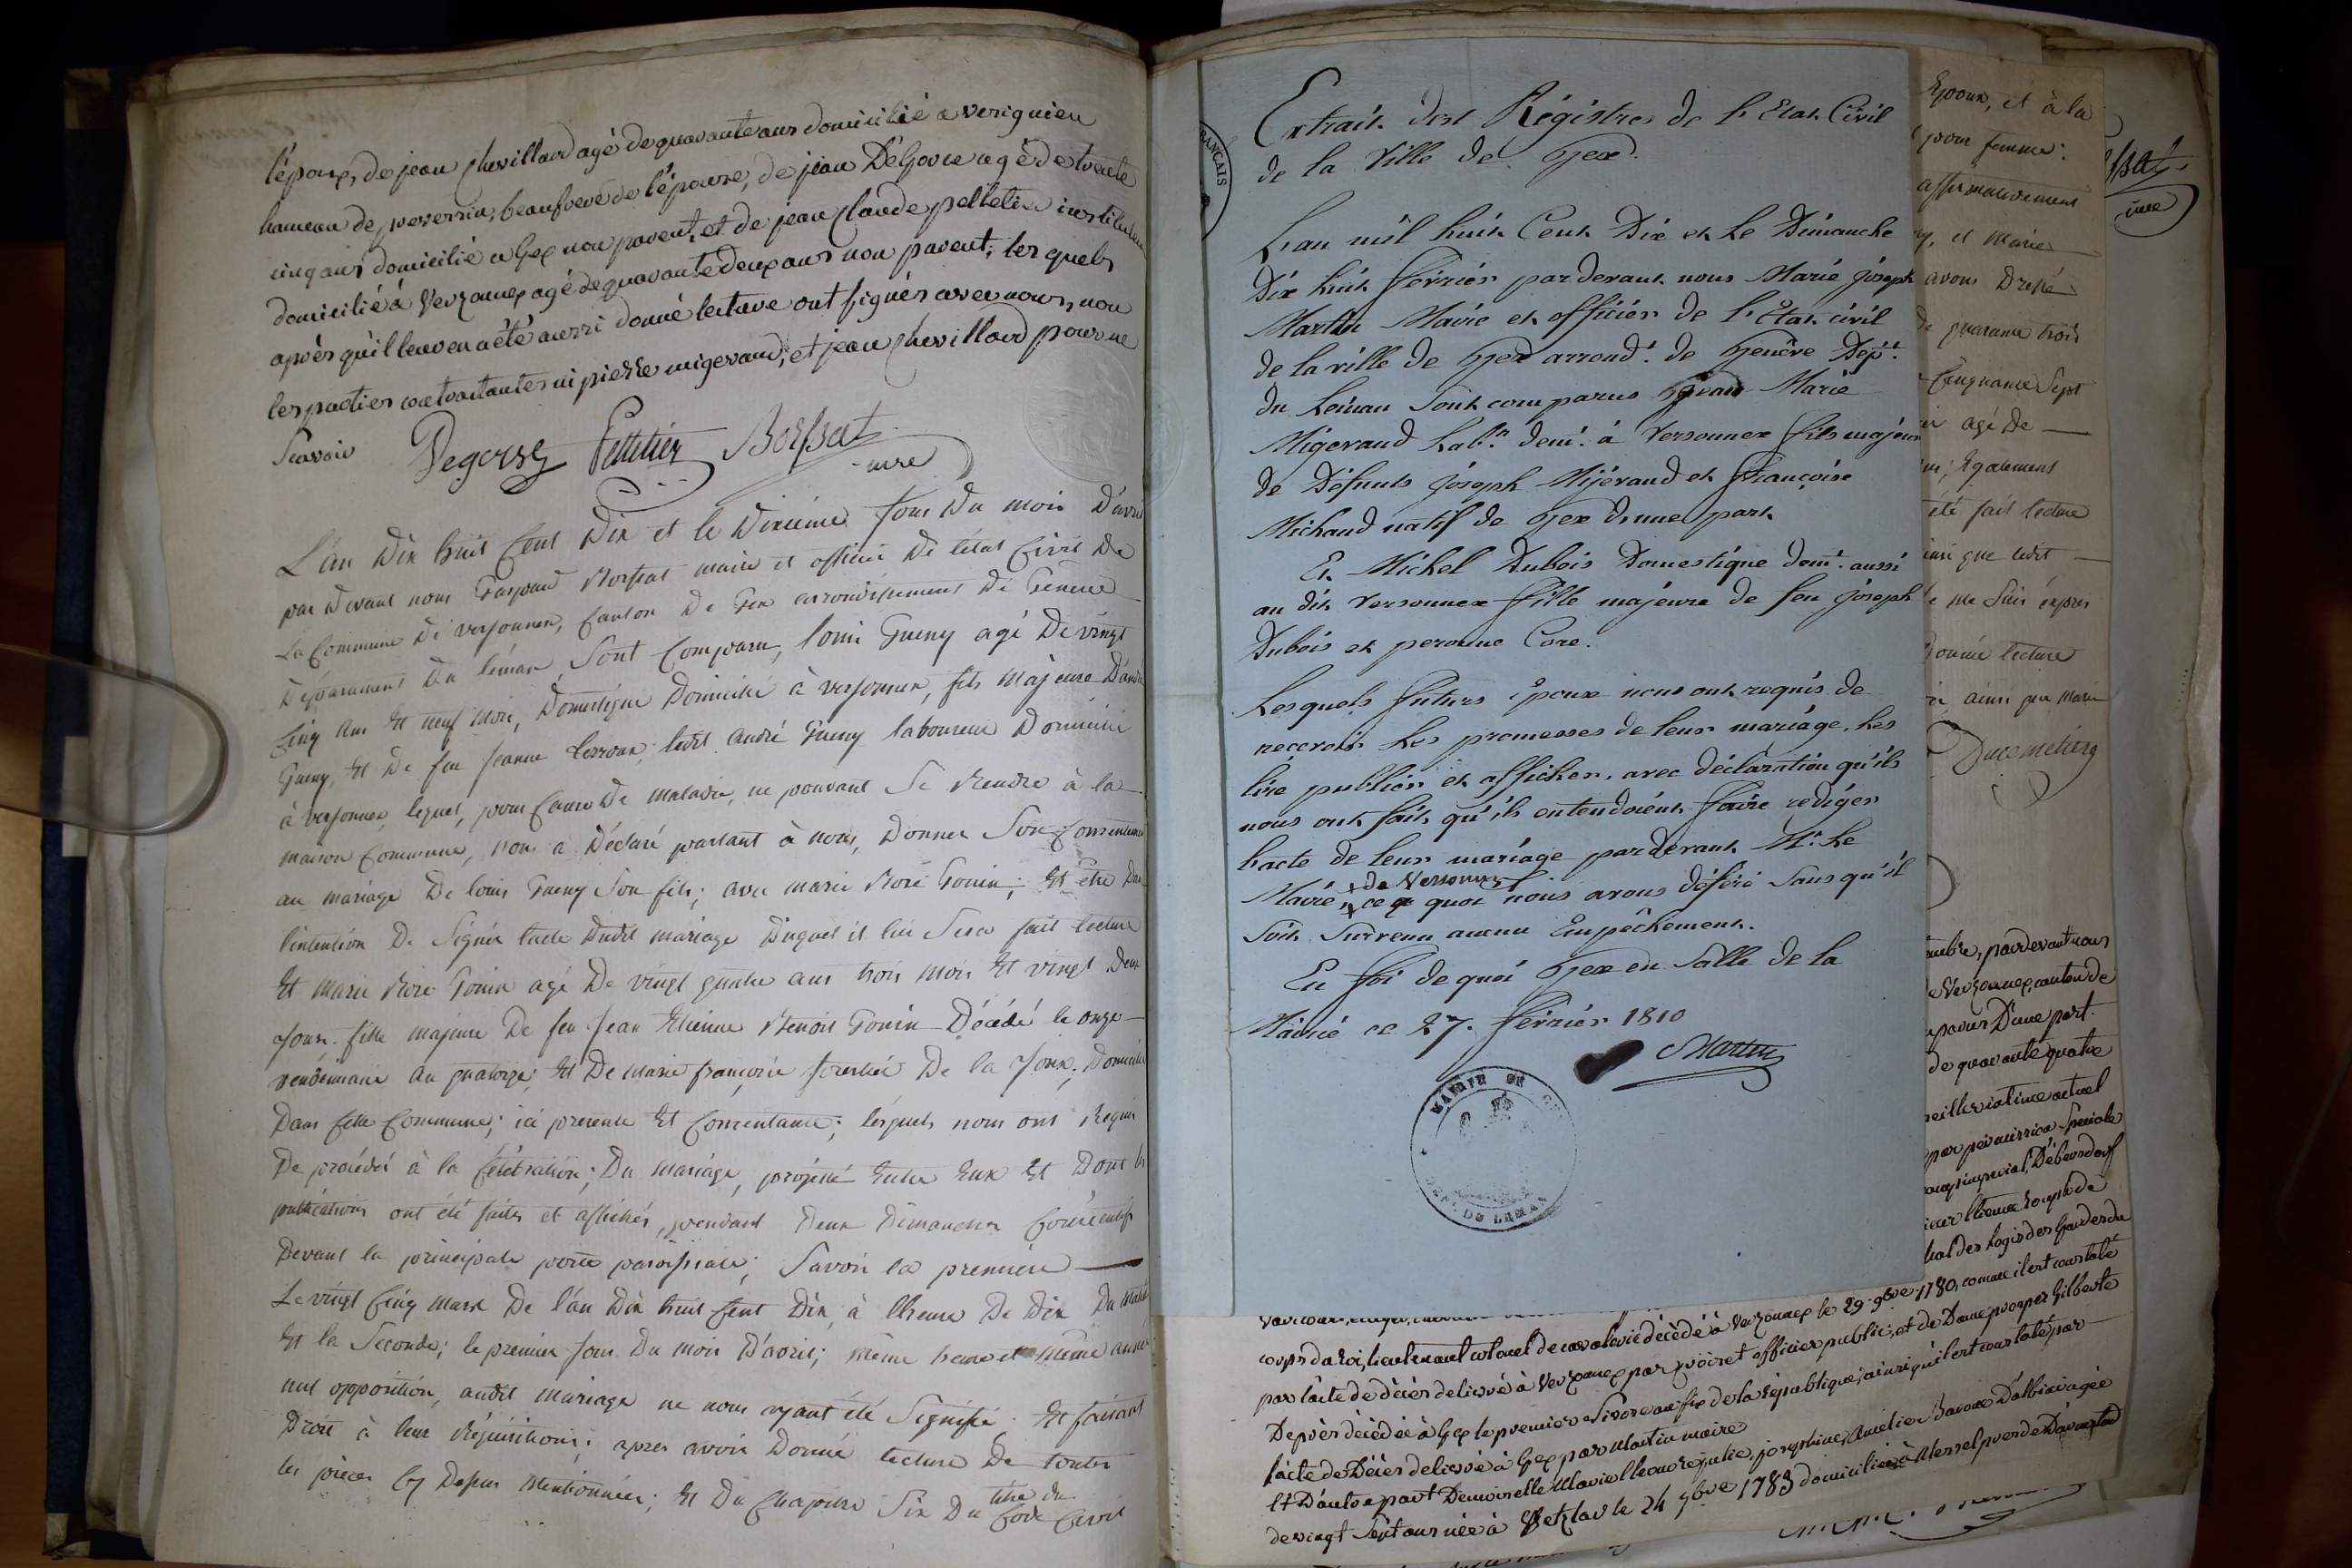 l'époux, de jean chevillard agé de quarante ans domicilié a verignieu
hameau de peverrin, beaufrere de l'épouse, de jean Degorse agé de trente
cinq ans domicilié a Gex non parent, et de jean claude pelletier instituteur
domicilié à Verzonnex agé de quarante deux ans non parent; les quels
après qu'il leur en a été aussi donné lecture ont signés avec nous, non
les parties contractantes ni pierre migerand, et jean chevillard pour ne
Scavoir Degorse Pelletier Boissat
mre
L'an Dix huit Cent Dix et le Dixieme Jour Du mois D'avril
par Devant nous Gaspard Boissat maire et officier De l'état Civil De
La Commune De versonnex, Canton De Gex arrondissement De Geneve
Departement Du léman, Sont Comparu, louis Gueny agé De vingt
Cinq ans Et neuf Mois, Domestique Domicilié à versonnex, fils Majeure D'andré
Gueny, Et De feu Jeanne Perroux; ledit andré Gueny laboureur Domicilié
à versonnex, lequel, pour Cause De maladie, ne pouvant Se Rendre à la
maison Commune, nous a Déclaré parlant à nous, Donner Son Consentement
au mariage De louis Gueny Son fils; avec marie Rose Gonin; Et être Dans
l'intention De Signér lacte Dudit mariage Duquel il lui Sera fait lecture
Et Marie Rose Gonin agé De vingt quatre ans trois mois Et vingt Deux
Jours. fille majeure De feu Jean Etienne Benoit Gonin Décédé le onze
vendemiaire an quatorze; Et De Marie françoise De la Joux; Domicilié
Dans Cette Commune; ici presente Et Consentante; lesquels nous ont Requis
De procéder à la Célébration; Du mariage, projetté Entre Eux Et Dont les
publications ont été faites et affichés, pendant Deux Dimanches Consécutifs
Devant la principale porte paroissiale; Savoir la premiere
Le vingt Cinq Mars De l'an Dix huit Cent Dix, à lheure De Dix Du matin
Et la Seconde; le premier Jour Du mois D'avril; même heure et même année
nul opposition, audit mariage ne nous ayant été Signifié. Et faisant
Droit à leur Réquisitions; apres avoir Donné lecture De toutes
les pièces Cy Dessus Mentionnées; Et Du Chapitre Six Du titre du Code Civil
FRANÇAIS
Extrait des Régistres de l'Etat Civil
de la Ville de Gex.
L'an mil huit Cent Dix et le Dimanche
Dix huit février pardevant nous Marie joseph
Martin Maire et officier de l'Etat civil
de la ville de Gex arrond.t de Genêve Dép.t
du Léman Sont comparus Jean Marie
Migerand Lab.r dem.t à Versonnex fils majeur
de Défunts joseph Mijerand et françoise
Michaud natif de Gex d'une part
Et Michel Dubois Domestique dem.t aussi
au dit versonnex fille majeure de feu joseph
Dubois et peronne Core.
Lesquels futurs Epoux nous ont requis de
recevoir les promesses de leur mariage, les
lire publier et afficher, avec déclaration qu'ils
nous ont fait qu'ils entendoient faire rediger
l'acte de leur mariage pardevant M.r le
Maire, + de Versonnex
+ ce a quoi nous avons déféré Sans qu'il
Soit Survenu aucun Empêchement.
En foi de quoi Gex en Salle de la
Mairie ce 27. février 1810
Martin
MAIRIE DE GEX
DEP. DU LEMAN
Epoux, et à la
pour femme.
affirmativement
et Marie
avons Dressé
de quarante trois
Cinquante Sept
agé De
Egalement
été fait lecture
ainsi que ledit
me Suis expres
Donné lecture
ainsi que Marie
Ducimetierg
Boissat
mre
pardevant nous
de Verzonnex, canton de
D'une part.
de quarante quatre
actuel
par permission Speciale
imperial, D'ebersdorf
des Logis des Gardes du
corps du Roi, lieutenant colonel de cavalerie décédé à Verzonnex le 29 9bre 1780, comme il est constaté
par l'acte de décès delivré à Verzonnex par poiret officier public, et de Dame prosper Gilberte
Deprès décédée à Gex le premier Nivose an six de la république, ainsi qu'il est constaté par
l'acte de Décès delivré à Gex par Martin maire
Et D'autre part Demoiselle Marie Eleonore julie, josephine, Amélie Baronne D'albiai agée
de vingt Sept ans née à Wetzlar le 24 9bre 1783 domiciliée à